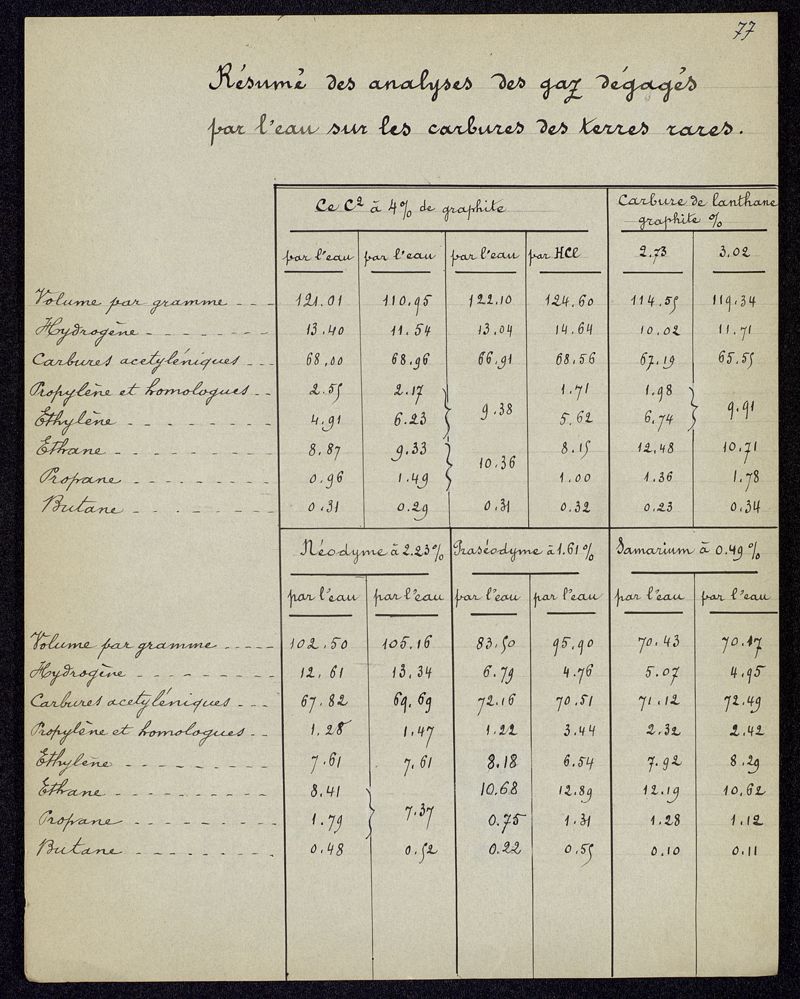 77
Résumé des analyses des gaz dégagés
par l'eau sur les carbures des terres rares.
Ce C² à 4% de graphite Carbure de lanthane
graphite %
par l'eau par l'eau par l'eau par HCl 2.73 3.02
Volume par gramme 121.01 110.95 122.10 124.60 114.55 119.34
Hydrogène 13.40 11.54 13.04 14.64 10.02 11.71
Carbures acetyléniques 68.00 68.96 66.91 68.56 67.19 65.55
Propylène et homologues 2.55 2.17 1.71 1.98
9.38 9.91
Ethylène 4.91 6.23 5.62 6.74
Ethane 8.87 9.33 8.15 12.48 10.71
10.36
Propane 0.96 1.49 1.00 1.36 1.78
Butane 0.31 0.29 0.31 0.32 0.23 0.34
Néodyme à 2.23% Praséodyme à 1.61% Samarium à 0.49%
par l'eau par l'eau par l'eau par l'eau par l'eau par l'eau
Volume par gramme 102.50 105.16 83.50 95.90 70.43 70.17
Hydrogène 12.61 13.34 6.79 4.76 5.07 4.95
Carbures acetyléniques 67.82 69.69 72.16 70.51 71.12 72.49
Propylène et homologues 1.28 1.47 1.22 3.44 2.32 2.42
Ethylène 7.61 7.61 8.18 6.54 7.92 8.29
Ethane 8.41 10.68 12.89 12.19 10.62
7.37
Propane 1.79 0.75 1.31 1.28 1.12
Butane 0.48 0.52 0.22 0.55 0.10 0.11